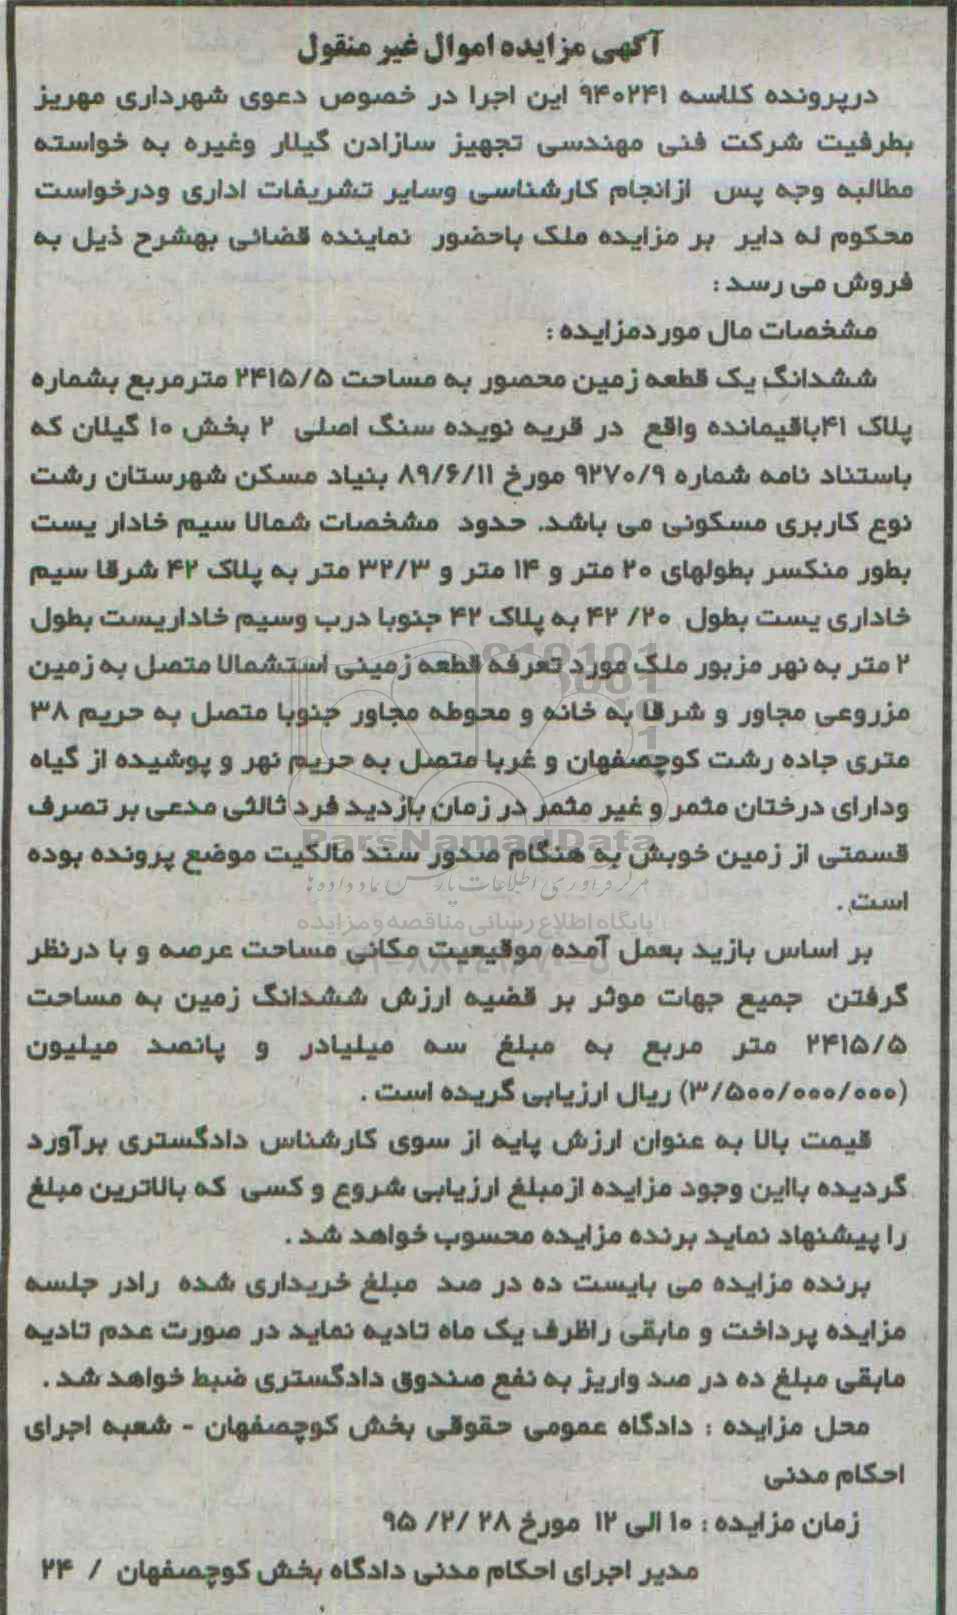 آگهی مزایده اموال غیر منقول
درپرونده کلاسه ۹۴۰۲۴۱ این اجرا در خصوص دعوی شهرداری مهریز
بطرفیت شرکت فنی مهندسی تجهیز سازادن گیلار وغیره به خواسته
مطالبه وجه پس ازانجام کارشناسی وسایر تشریفات اداری ودرخواست
محکوم له دایر بر مزایده ملک باحضور نماینده قضائی بهشرح ذیل به
فروش می رسد :
مشخصات مال موردمزایده :
ششدانگ یک قطعه زمین محصور به مساحت ۲۴۱۵/۵ مترمربع بشماره
پلاک ۴۱باقیمانده واقع در قریه نویده سنگ اصلی ۲ بخش ۱۰ گیلان که
باستناد نامه شماره ۹۲۷۰/۹ مورخ ۸۹/۶/۱۱ بنیاد مسکن شهرستان رشت
نوع کاربری مسکونی می باشد. حدود مشخصات شمالا سیم خادار یست
بطور منکسر بطولهای ۲۰ متر و ۱۴ متر و ۳۲/۳ متر به پلاک ۴۲ شرقا سیم
خاداری یست بطول ۴۲/۲۰ به پلاک ۴۲ جنوبا درب وسیم خاداریست بطول
۲ متر به نهر مزبور ملک مورد تعرفه قطعه زمینی استشمالا متصل به زمین
مزروعی مجاور و شرقا به خانه و محوطه مجاور جنوبا متصل به حریم ۳۸
متری جاده رشت کوچصفهان و غربا متصل به حریم نهر و پوشیده از گیاه
ودارای درختان مثمر و غیر مثمر در زمان بازدید فرد ثالثی مدعی بر تصرف
قسمتی از زمین خویش به هنگام صدور سند مالکیت موضع پرونده بوده
است .
بر اساس بازید بعمل آمده موقیعیت مکانی مساحت عرصه و با درنظر
گرفتن جمیع جهات موثر بر قضیه ارزش ششدانگ زمین به مساحت
۲۴۱۵/۵ متر مربع به مبلغ سه میلیادر و پانصد میلیون
(۳/۵۰۰/۰۰۰/۰۰۰) ریال ارزیابی گریده است .
قیمت بالا به عنوان ارزش پایه از سوی کارشناس دادگستری برآورد
گردیده بااین وجود مزایده ازمبلغ ارزیابی شروع و کسی که بالاترین مبلغ
را پیشنهاد نماید برنده مزایده محسوب خواهد شد .
برنده مزایده می بایست ده در صد مبلغ خریداری شده رادر جلسه
مزایده پرداخت و مابقی راظرف یک ماه تادیه نماید در صورت عدم تادیه
مابقی مبلغ ده در صد واریز به نفع صندوق دادگستری ضبط خواهد شد .
محل مزایده : دادگاه عمومی حقوقی بخش کوچصفهان - شعبه اجرای
احکام مدنی
زمان مزایده : ۱۰ الی ۱۲ مورخ ۲۸ /۲/ ۹۵
مدیر اجرای احکام مدنی دادگاه بخش کوچصفهان / ۲۴
ParsNamadData
مرکز فرآوری اطلاعات پارس نماد داده ها
پایگاه اطلاع رسانی مناقصه و مزایده